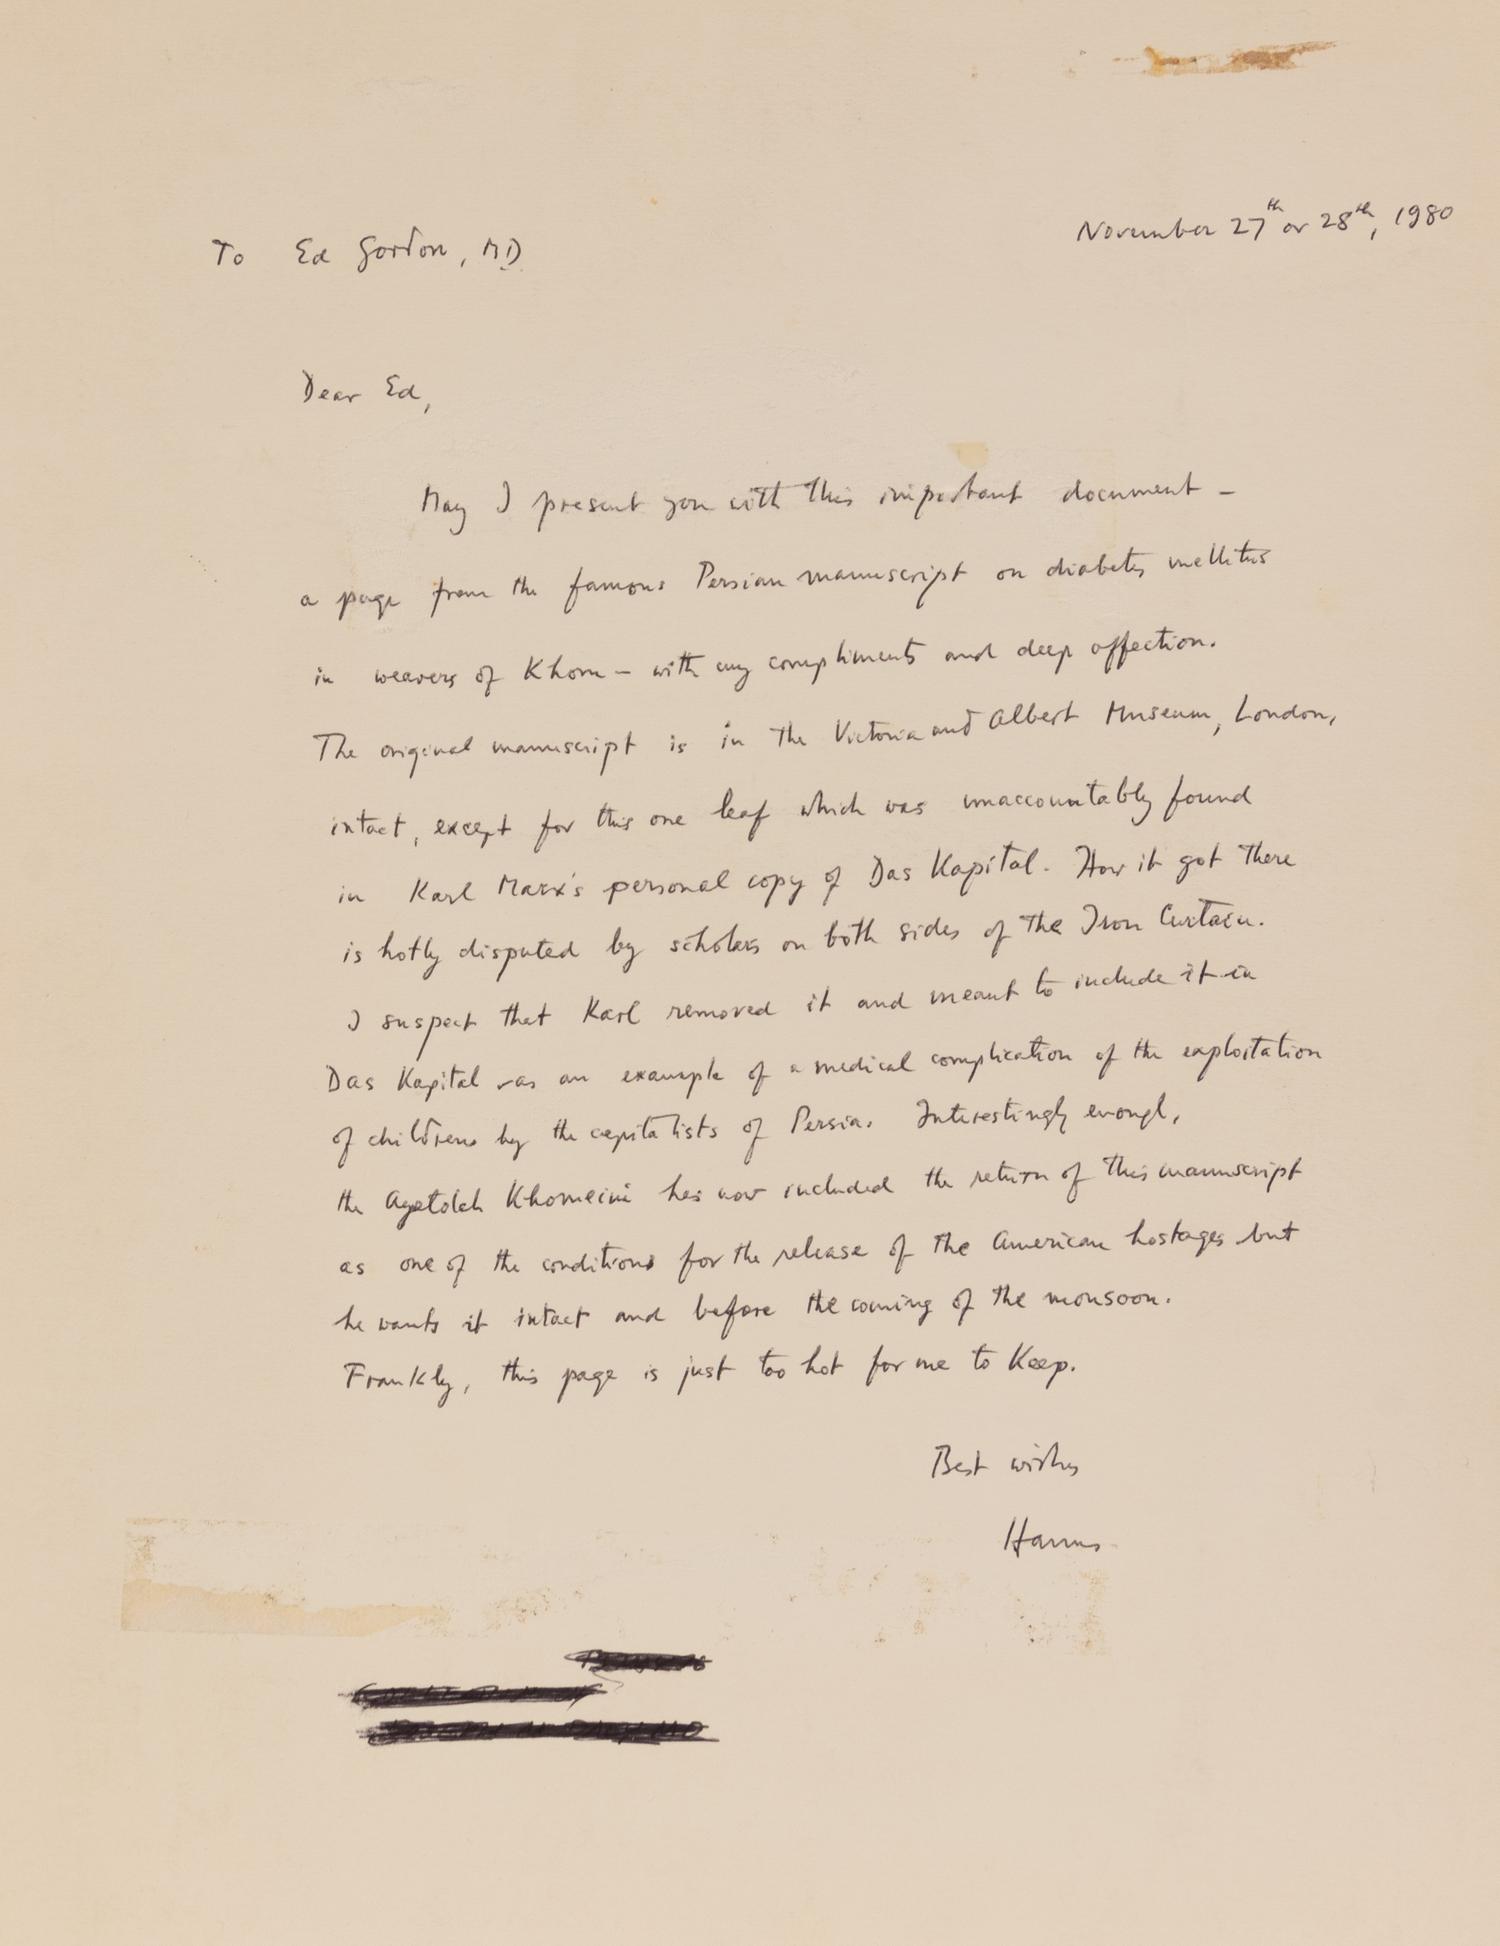 November 27th or 28th, 1980
To Ed Gordon, MD
Dear Ed,
May I present you with this important document –
a page from the famous Persian manuscript on diabetes mellitus
in weavers of Khom – with my compliments and deep affection.
The original manuscript is in the Victoria and Albert Museum, London,
intact, except for this one leaf which was unaccountably found
in Karl Marx's personal copy of Das Kapital. How it got there
is hotly disputed by scholars on both sides of the Iron Curtain.
I suspect that Karl removed it and meant to include it in
Das Kapital as an example of a medical complication of the exploitation
of children by the capitalists of Persia. Interestingly enough,
the Ayatolah Khomeini has now included the return of this manuscript
as one of the conditions for the release of the American hostages but
he wants it intact and before the coming of the monsoon.
Frankly, this page is just too hot for me to keep.
Best wishes